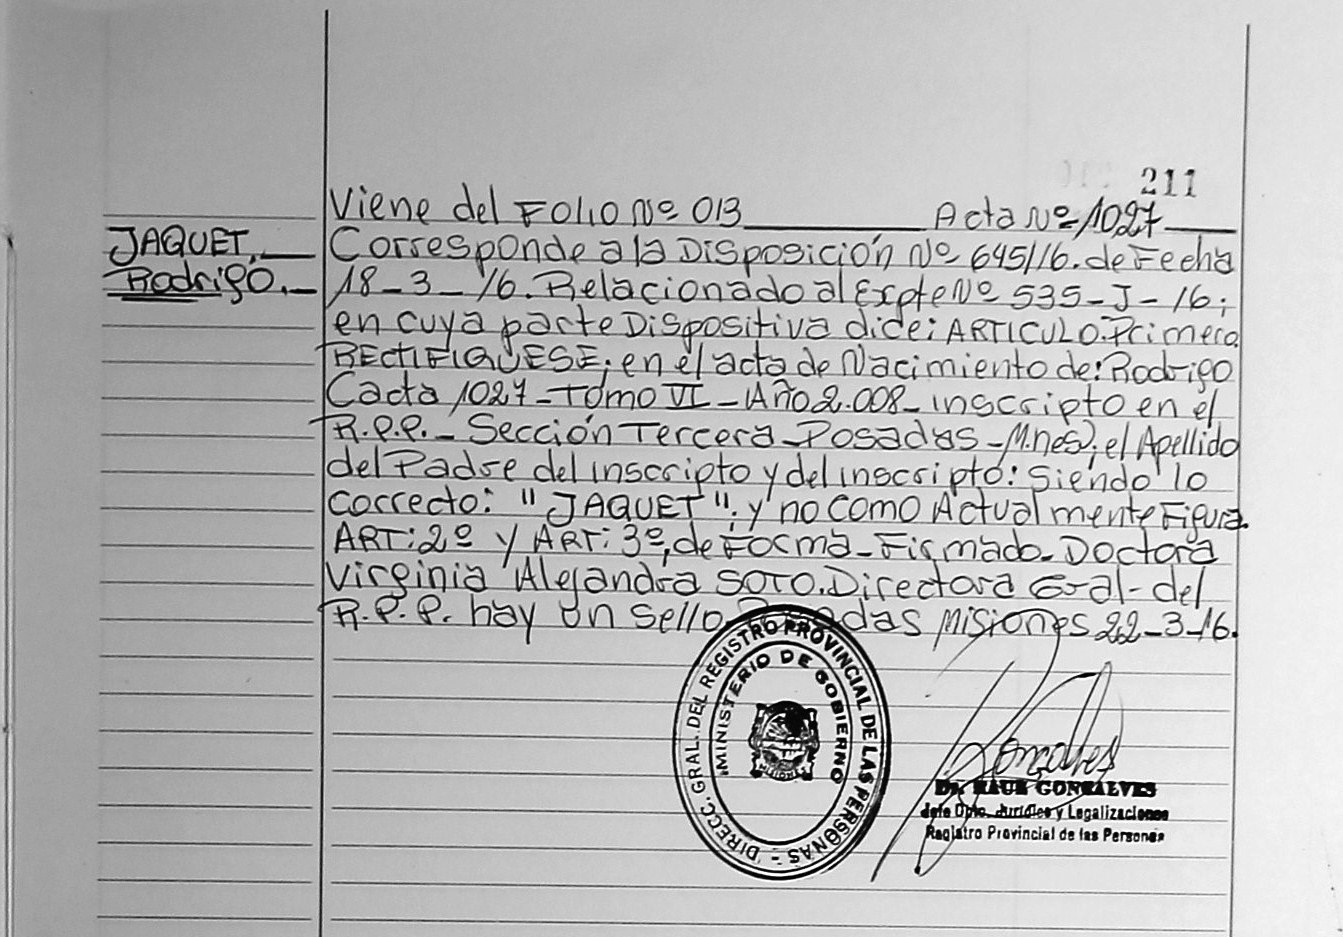 211
Viene del Folio Nº 013 Acta Nº 1027
JAQUET,
Rodrigo.
Corresponde a la Disposición Nº 645/16. de Fecha
18-3-16. Relacionado al Expte Nº 535-J-16;
en cuya parte Dispositiva dice; ARTICULO. Primero.
RECTIFIQUESE; en el acta de Nacimiento de: Rodrigo
(acta 1027-Tomo VI-Año 2.008-inscripto en el
R.P.P.- Sección Tercera-Posadas-M.nes); el Apellido
del Padre del inscripto y del inscripto: Siendo lo
correcto: "JAQUET"; y no como Actualmente Figura.
ART: 2º y ART: 3º, de Forma-Firmado-Doctora
Virginia Alejandra SOTO. Directora Gral-del
R.P.P. hay un sello. Posadas Misiones 22-3-16.
DIRECC. GRAL. DEL REGISTRO PROVINCIAL DE LAS PERSONAS -
MINISTERIO DE GOBIERNO
MISIONES
Dr. RAUL GONSALVES
Jefe Dpto. Jurídico y Legalizaciones
Registro Provincial de las Personas